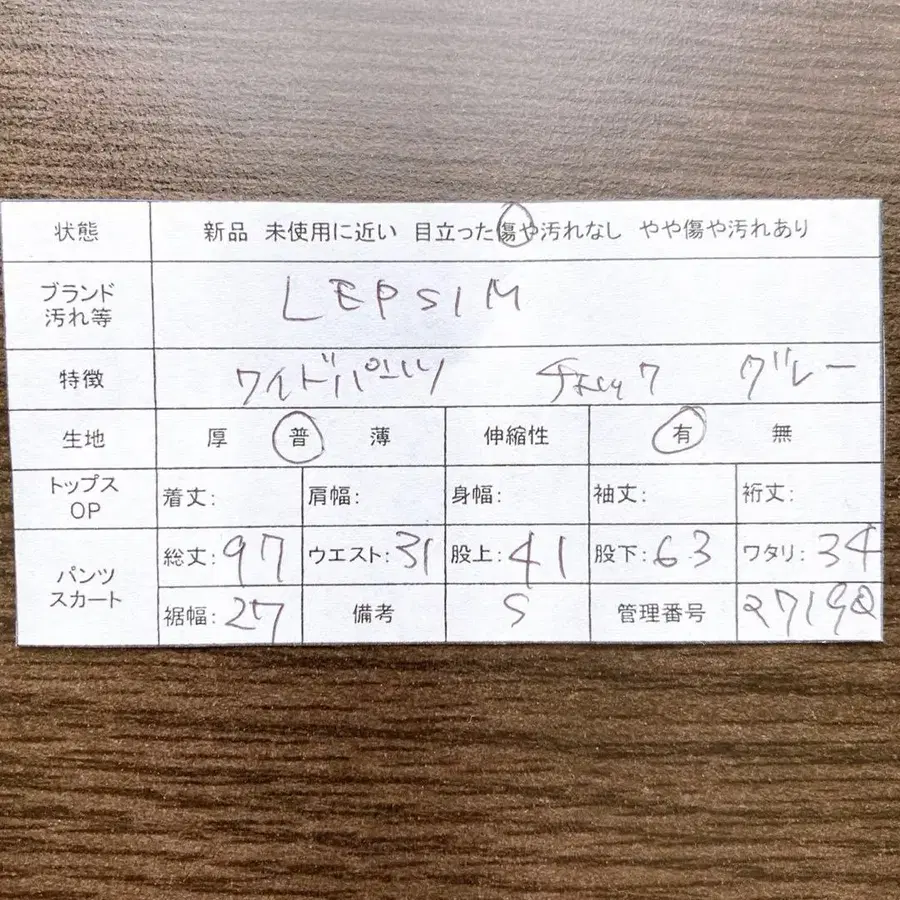 状態 新品 未使用に近い 目立った傷や汚れなし やや傷や汚れあり
ブランド
汚れ等 LEPSIM
特徴 ワイドパンツ チェック グレー
生地 厚 普 薄 伸縮性 有 無
トップス
OP 着丈: 肩幅: 身幅: 袖丈: 裄丈:
パンツ
スカート 総丈:97 ウエスト:31 股上:41 股下:63 ワタリ:34
裾幅:27 備考 S 管理番号